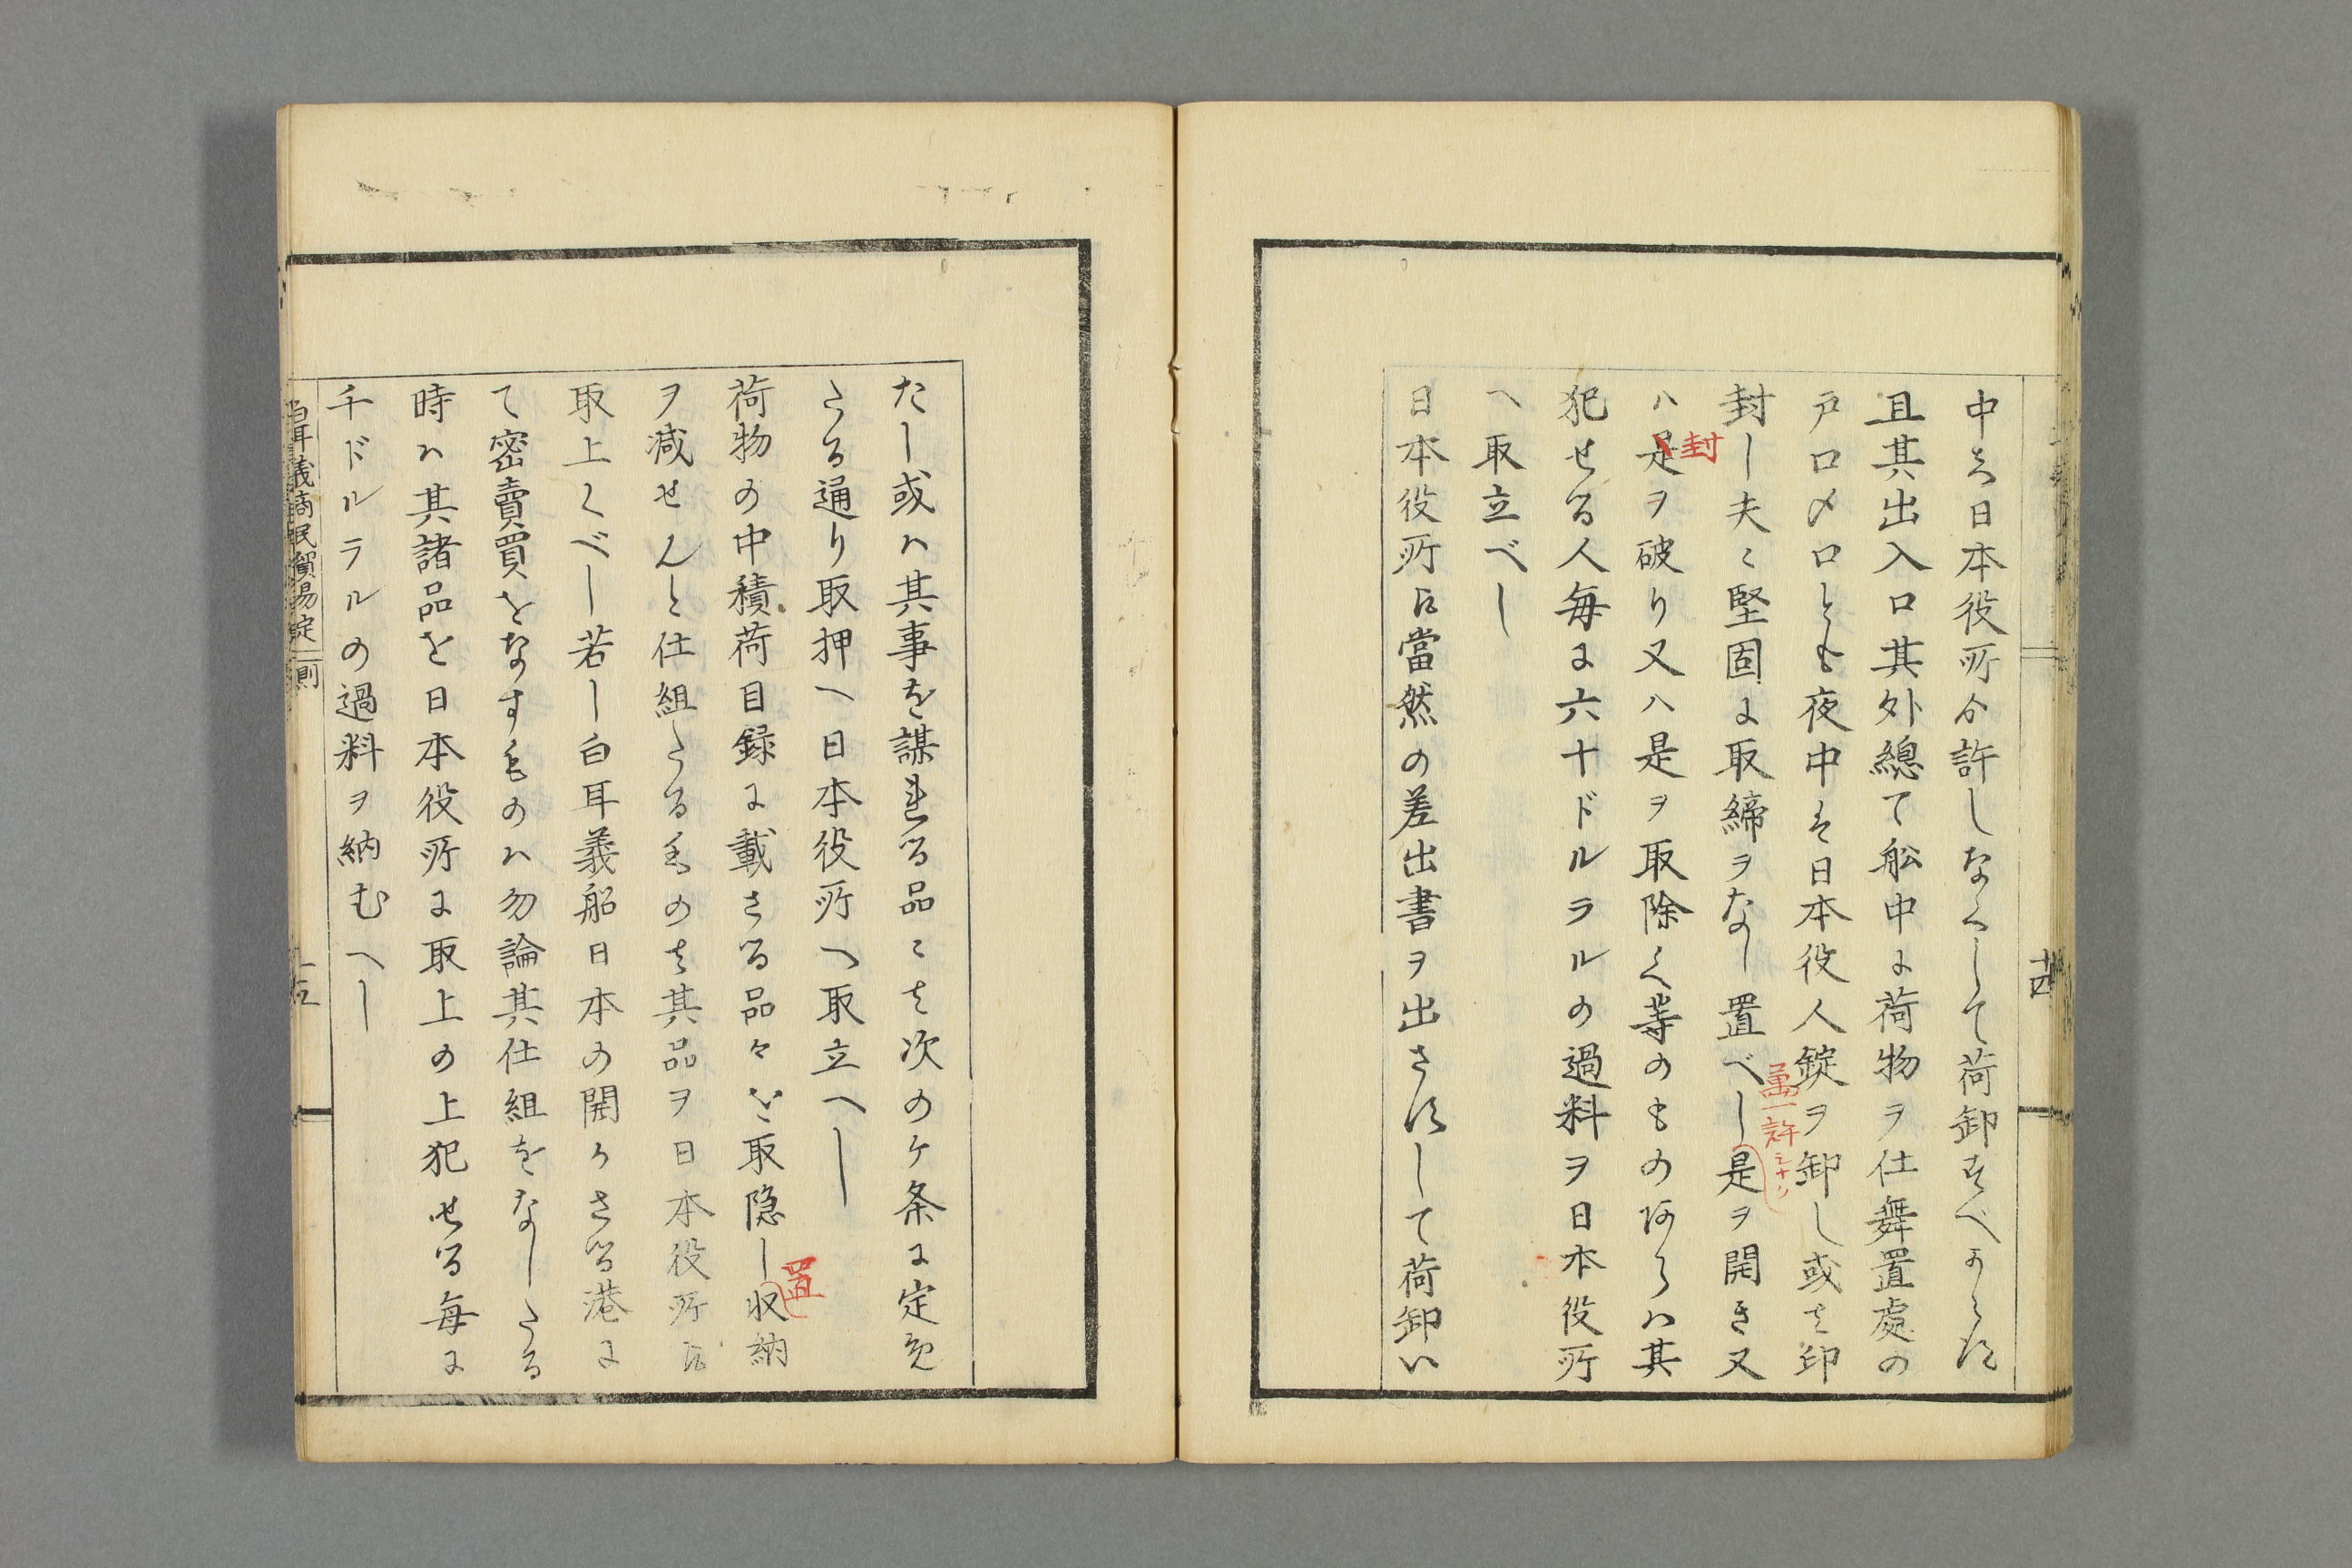 中は日本役所ゟ許しなくして荷卸すべからす
且其出入口其外總て舩中に荷物ヲ仕舞置處の
戸口〆口とも夜中は日本役人錠ヲ卸し或は印
封し夫〻堅固に取締ヲなし置べし是ヲ開き又
ハ是ヲ破り又ハ是ヲ取除く等のものあらハ其
犯せる人毎に六十ドルラルの過料ヲ日本役所
へ取立べし
日本役所に當然の差出書ヲ出さすして荷卸い
封
許
十四
たし或ハ其事を謀れる品〻は次のケ条に定め
たる通り取押へ日本役所へ取立へし
荷物の中積荷目録に載さる品々を取隠し収納
ヲ減せんと仕組たるものは其品ヲ日本役所に
取上くべし若し白耳義船日本の開かさる港に
て密賣買をなすものハ勿論其仕組をなしたる
時ハ其諸品を日本役所に取上の上犯せる毎に
千ドルラルの過料ヲ納むへし
置
白耳義商民貿易定則
十五